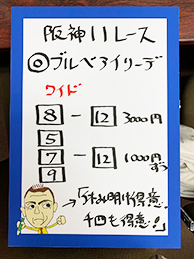 阪神11レース
◎ブルベアイリーデ
ワイド
8 - 12 3000円
5
7 - 12 1000円ずつ
9
→「休み明け得意
千四も得意!」